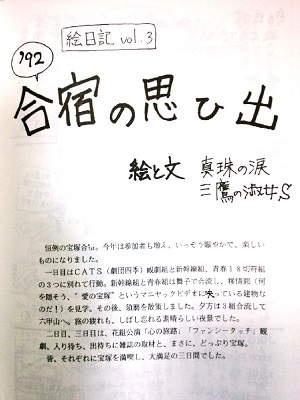 絵日記 vol.3
'92
合宿の思ひ出
絵と文 真珠の涙
三鷹の淑女S
恒例の宝塚合宿。今年は参加者も増え、いっそう賑やかで、楽しい
ものになりました。
一日目はCATS(劇団四季)観劇組と新幹線組、青春18切符組
の3つに別れて行動。新幹線組と青春組は舞子で合流し、移情閣(何
を隠そう、“愛の宝塚”というマニヤックビデオに映っている建物な
のだ!)を見学。その後、須磨を散策しました。夕方は3組合流して
六甲山へ。旅の疲れも、しばし忘れる素晴らしい夜景でした。
二日目、三日目は、花組公演「心の旅路」「ファンシータッチ」観
劇、入り待ち、出待ちに雑誌の取材と、まさに、どっぷり宝塚。
皆、それぞれに宝塚を満喫し、大満足の三日間でした。